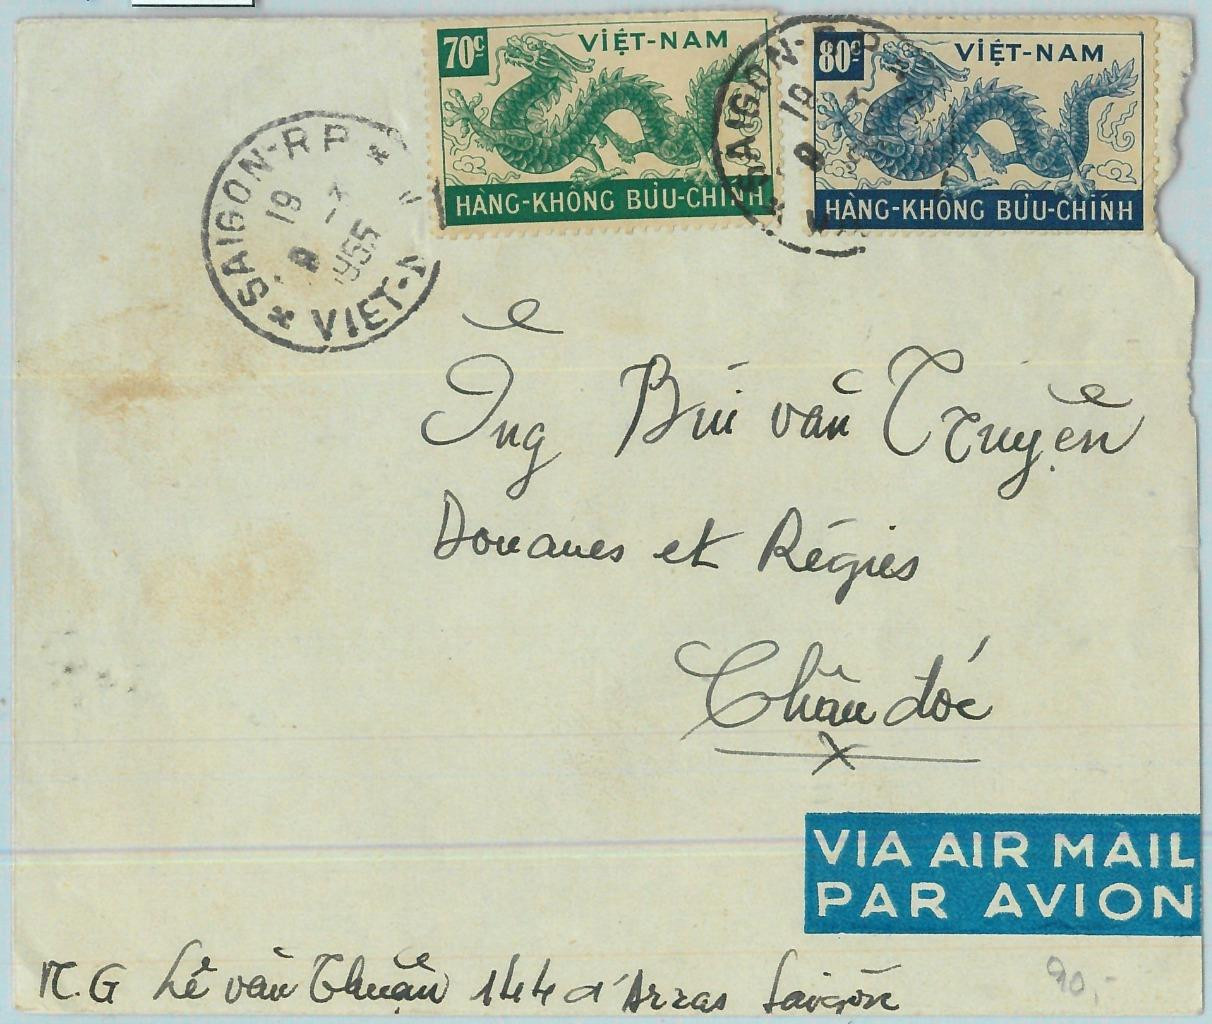 70c VIỆT-NAM
HÀNG-KHÔNG BƯU-CHÍNH
80c VIỆT-NAM
HÀNG-KHÔNG BƯU-CHÍNH
SAIGON-R.P.
19
8
1955
VIET-N
SAIGON-R.P.
19
Ông Bùi văn Truyện
Douanes et Régies
Châu đốc
VIA AIR MAIL
PAR AVION
N.G Lê văn Thuận 144 d'Arras Saigon
90,-